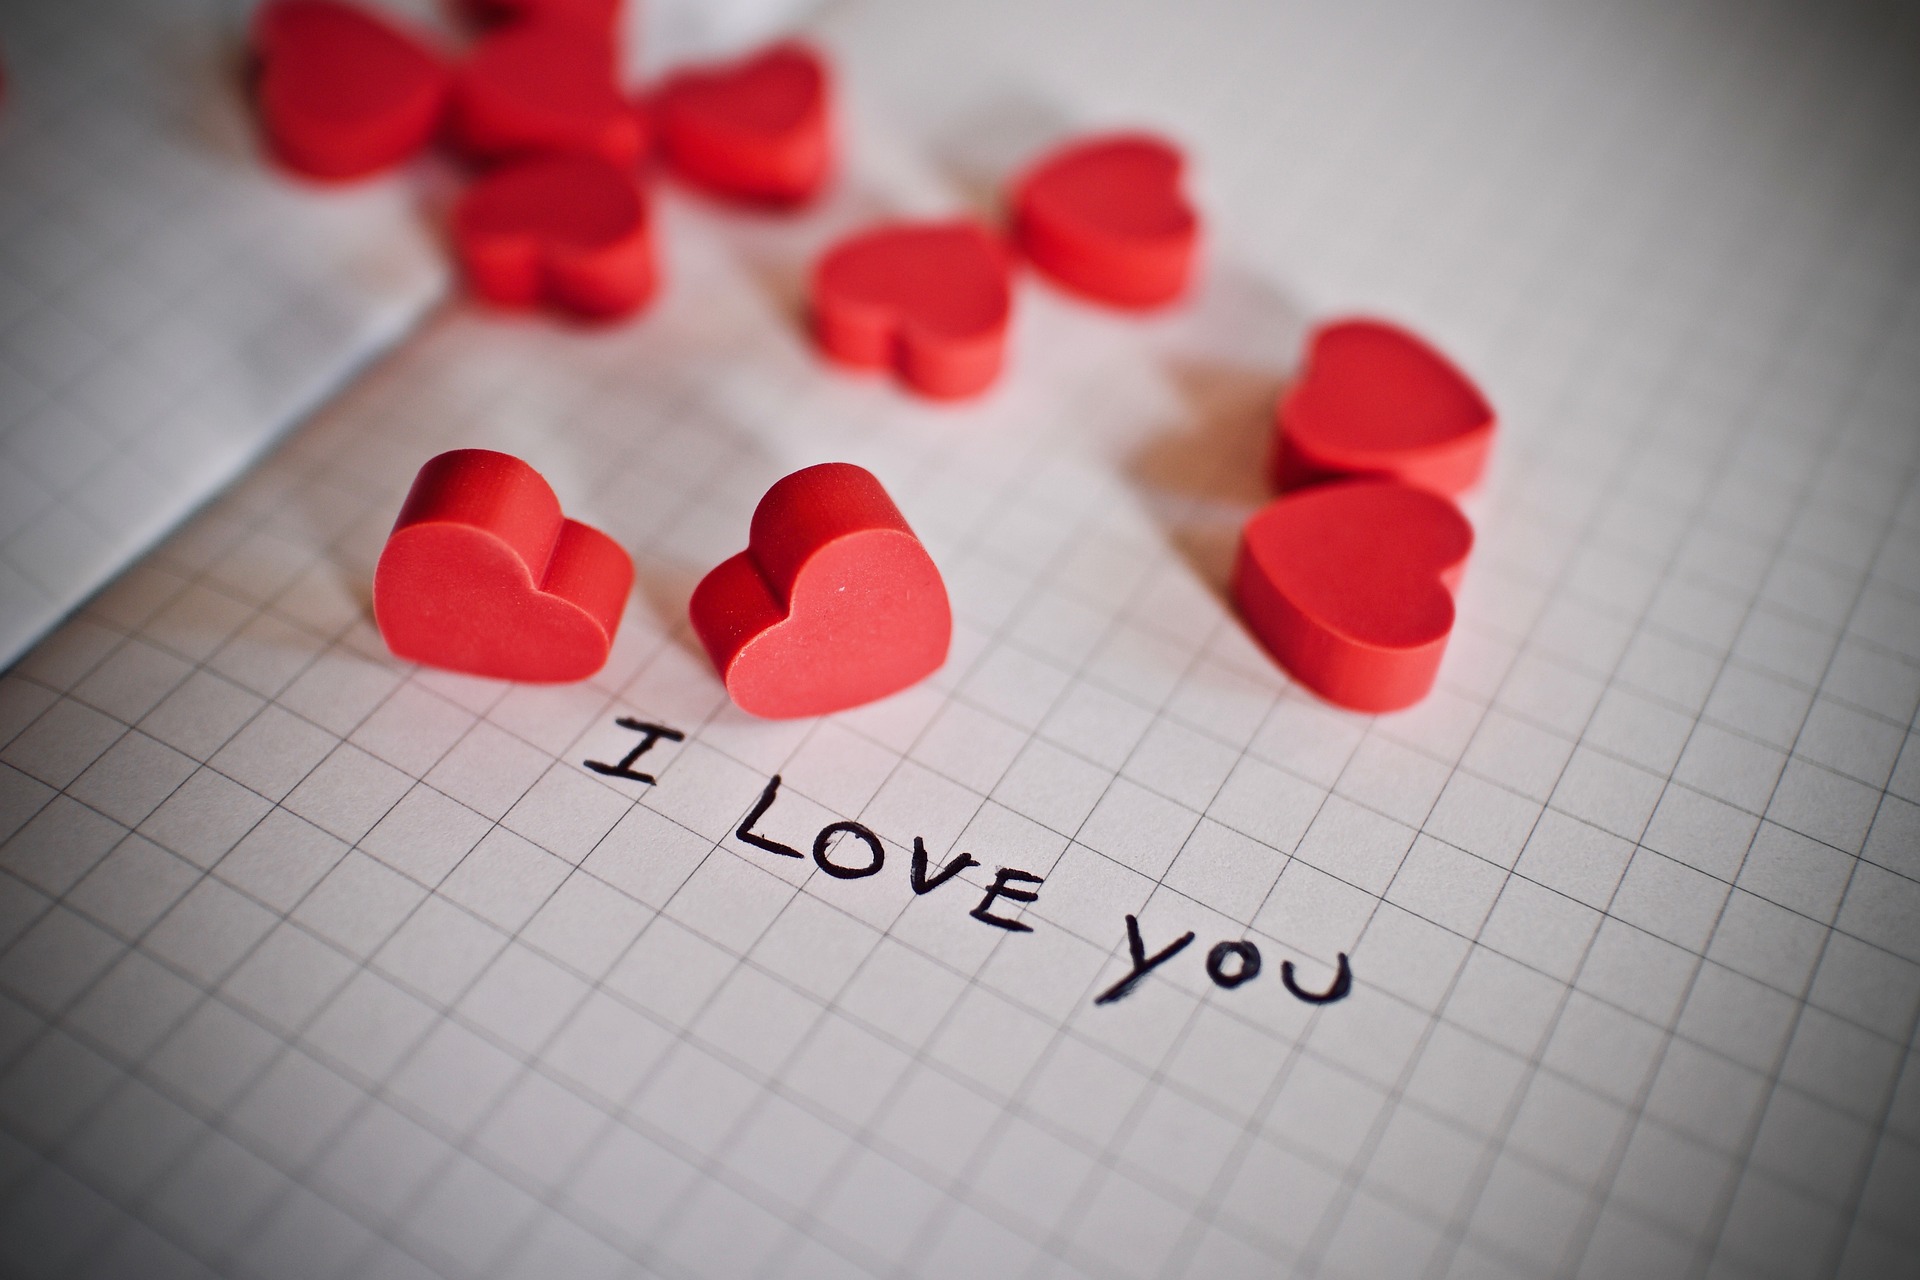 I LOVE YOU